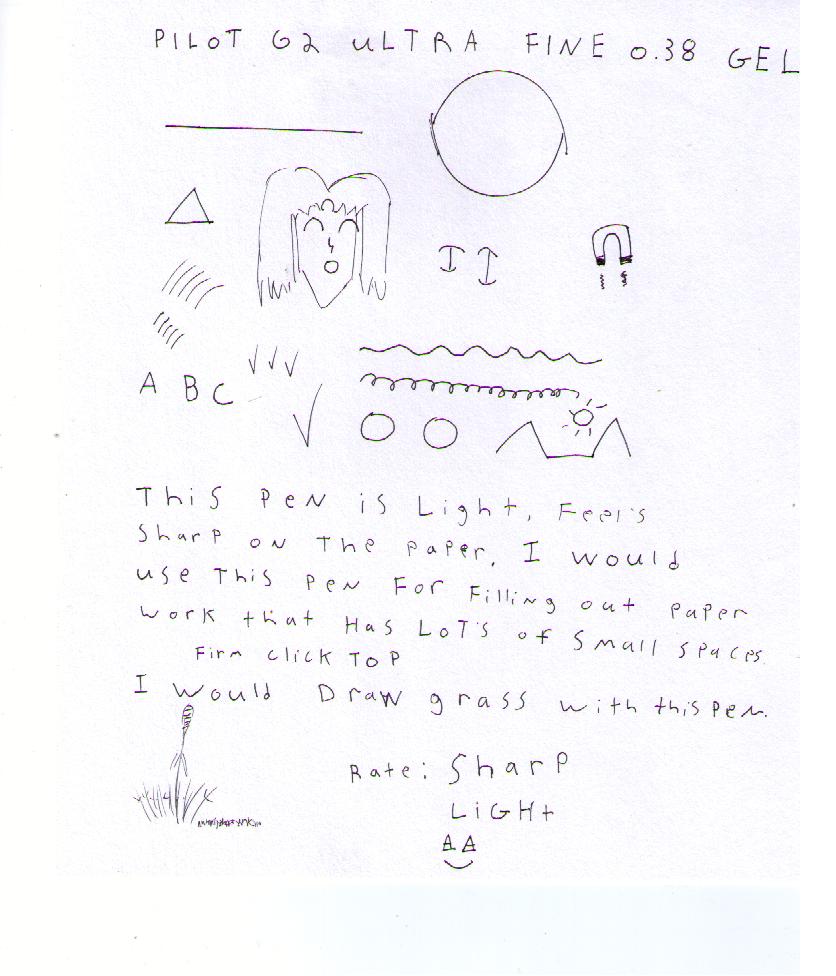 PILOT G2 ULTRA FINE 0.38 GEL
A B C
This Pen is Light, Feel's
Sharp on The paper. I would
use This pen For Filling out paper
work that Has LoT's of Small spaces
Firm click Top
I would Draw grass with this pen.
Rate: Sharp
LiGHt